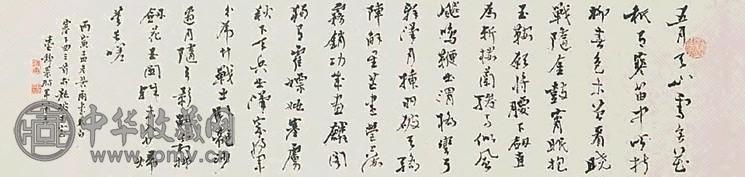 五月天山雪無花
祇有寒笛中聞折
柳春色未曾看曉
戰隨金鼓宵眠抱
玉鞍願將腰下劍直
為斬樓蘭駿馬似風
飆鳴鞭出渭橋彎弓
辭漢月插羽破天驕
陣解星芒盡營空海
霧銷功成畫麟閣
獨有霍嫖姚塞虜乘
秋下天兵出漢家將軍
分虎竹戰士臥龍沙
邊月隨弓影胡霜拂
劍花玉關殊未入少婦
莫長嗟
丙寅
中华收藏网